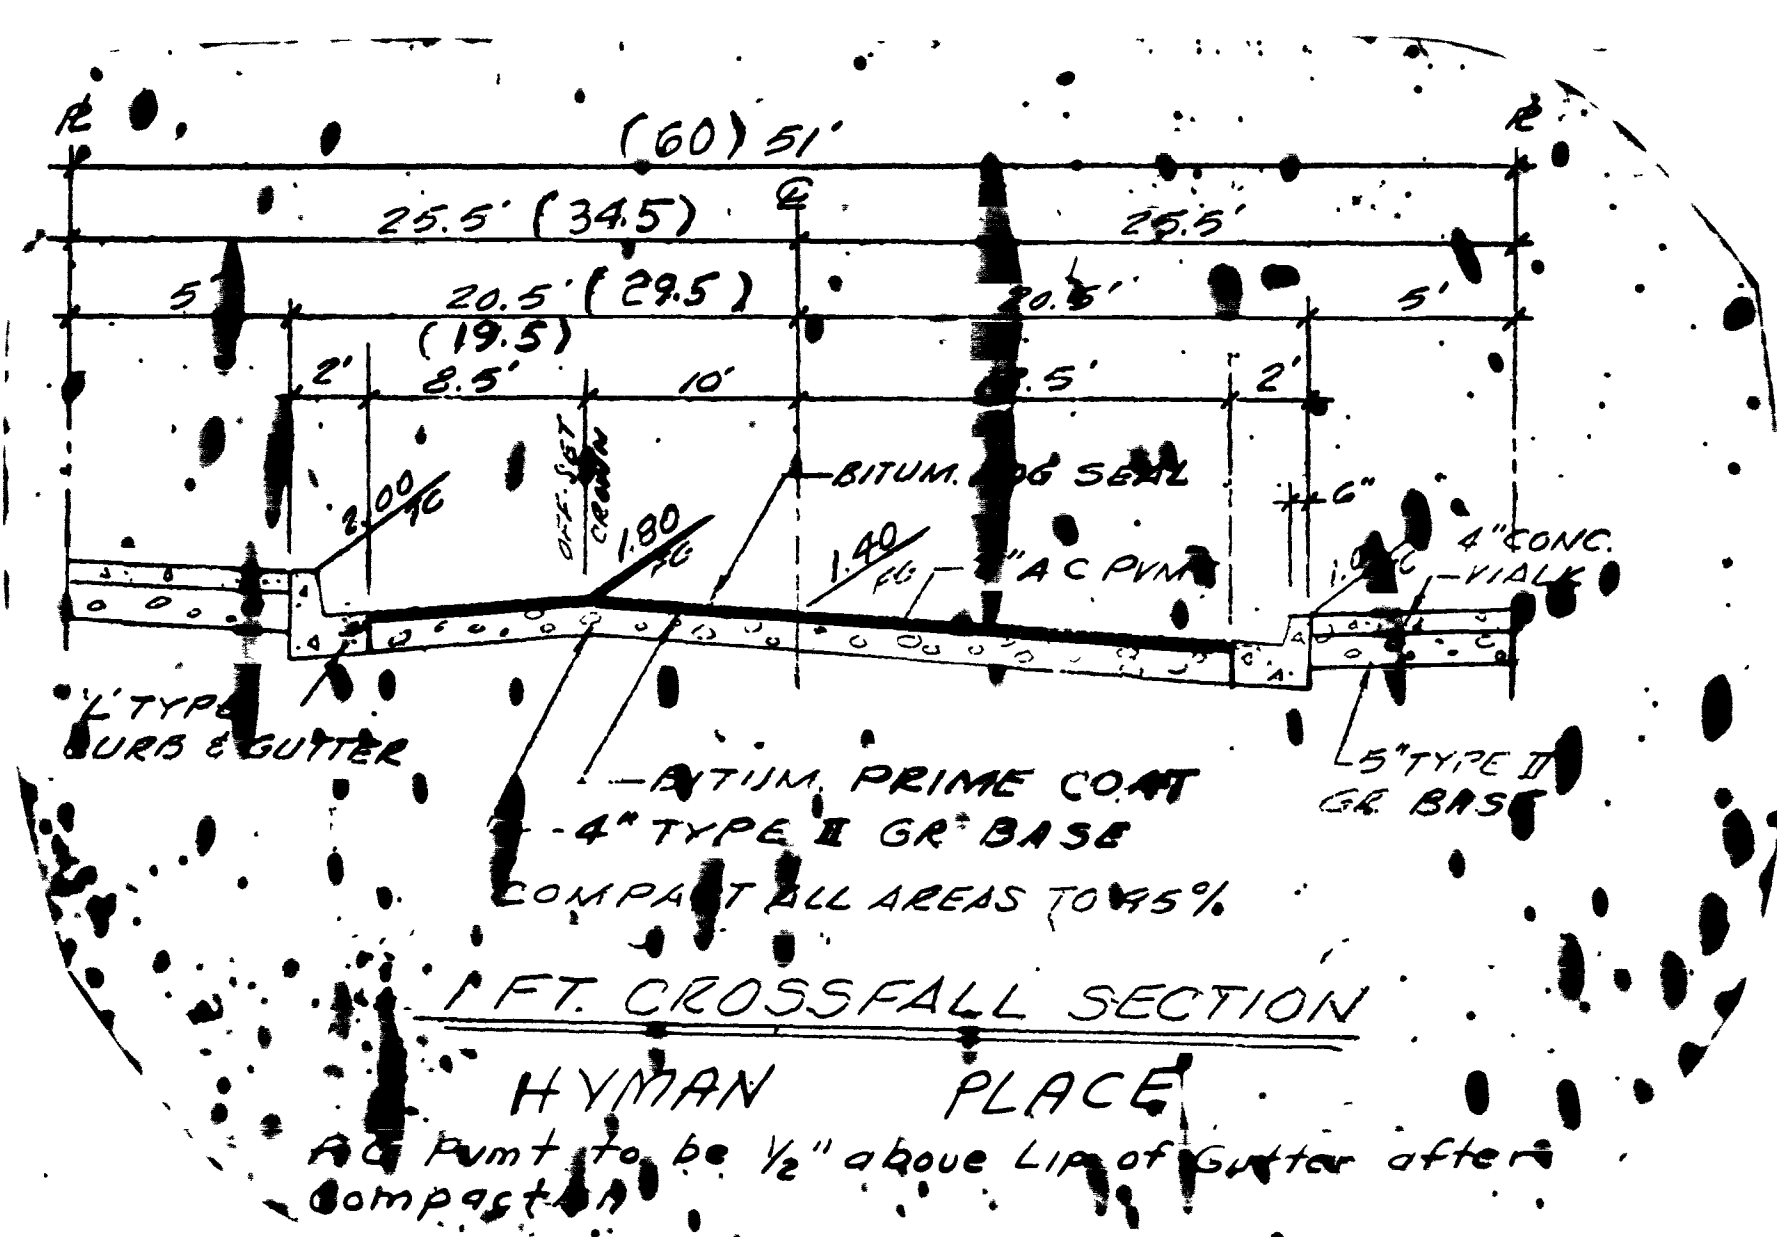 (60) 51'
25.5' (34.5)
25.5'
5'
20.5' (29.5)
20.5'
5'
(19.5)
2'
8.5'
10'
2'
OFF-SET
CROWN
2.00
TC
1.80
FG
BITUM. FOG SEAL
1.40
FG
6"
4" CONC.
WALK
A C PVMT
'L' TYPE
CURB & GUTTER
5" TYPE II
GR. BASE
BITUM. PRIME COAT
4" TYPE II GR. BASE
COMPACT ALL AREAS TO 95%
1 FT. CROSSFALL SECTION
HYMAN PLACE
AC Pvmt to be 1/2" above Lip of Gutter after
Compaction